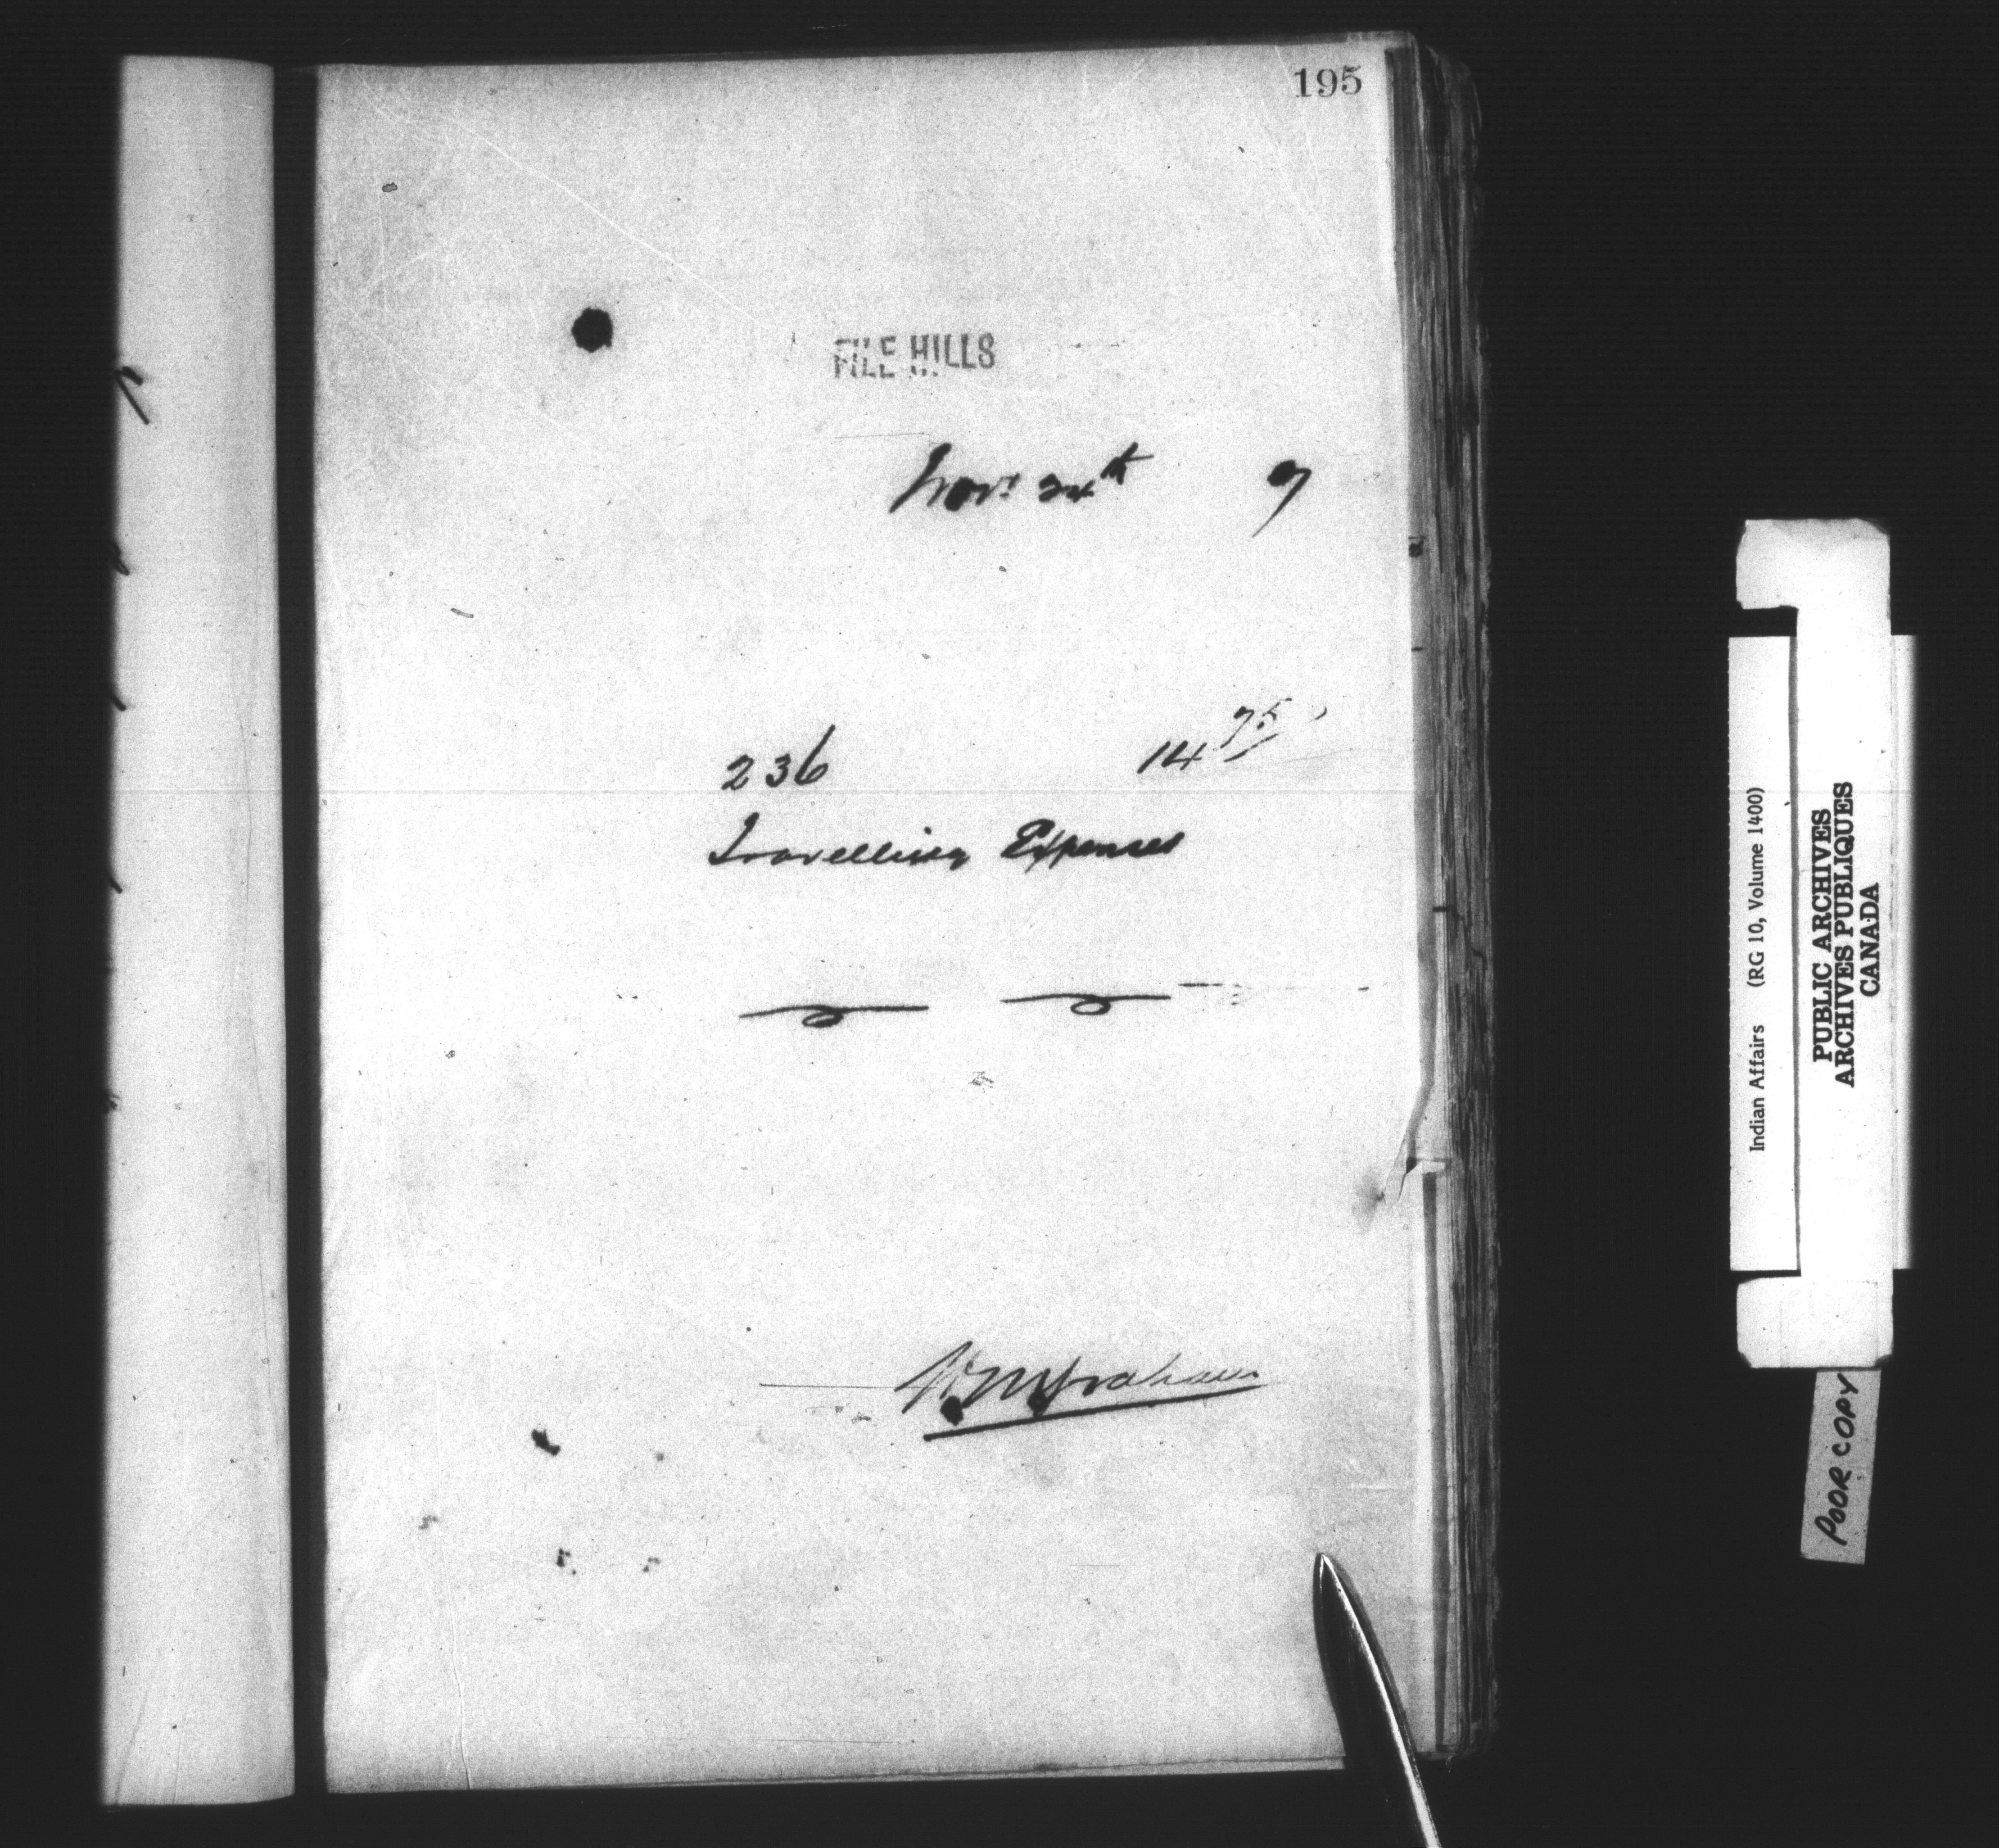 195
FILE HILLS
Nov. 24th 7
236 14 75
Travelling Expenses
Wm Graham
Indian Affairs (RG 10, Volume 1400)
PUBLIC ARCHIVES
ARCHIVES PUBLIQUES
CANADA
POOR COPY